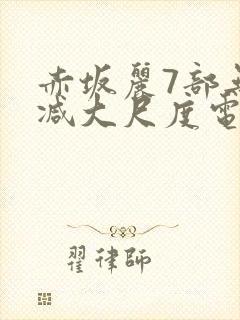 赤坂麗7部無
减大尺度電
翟律師